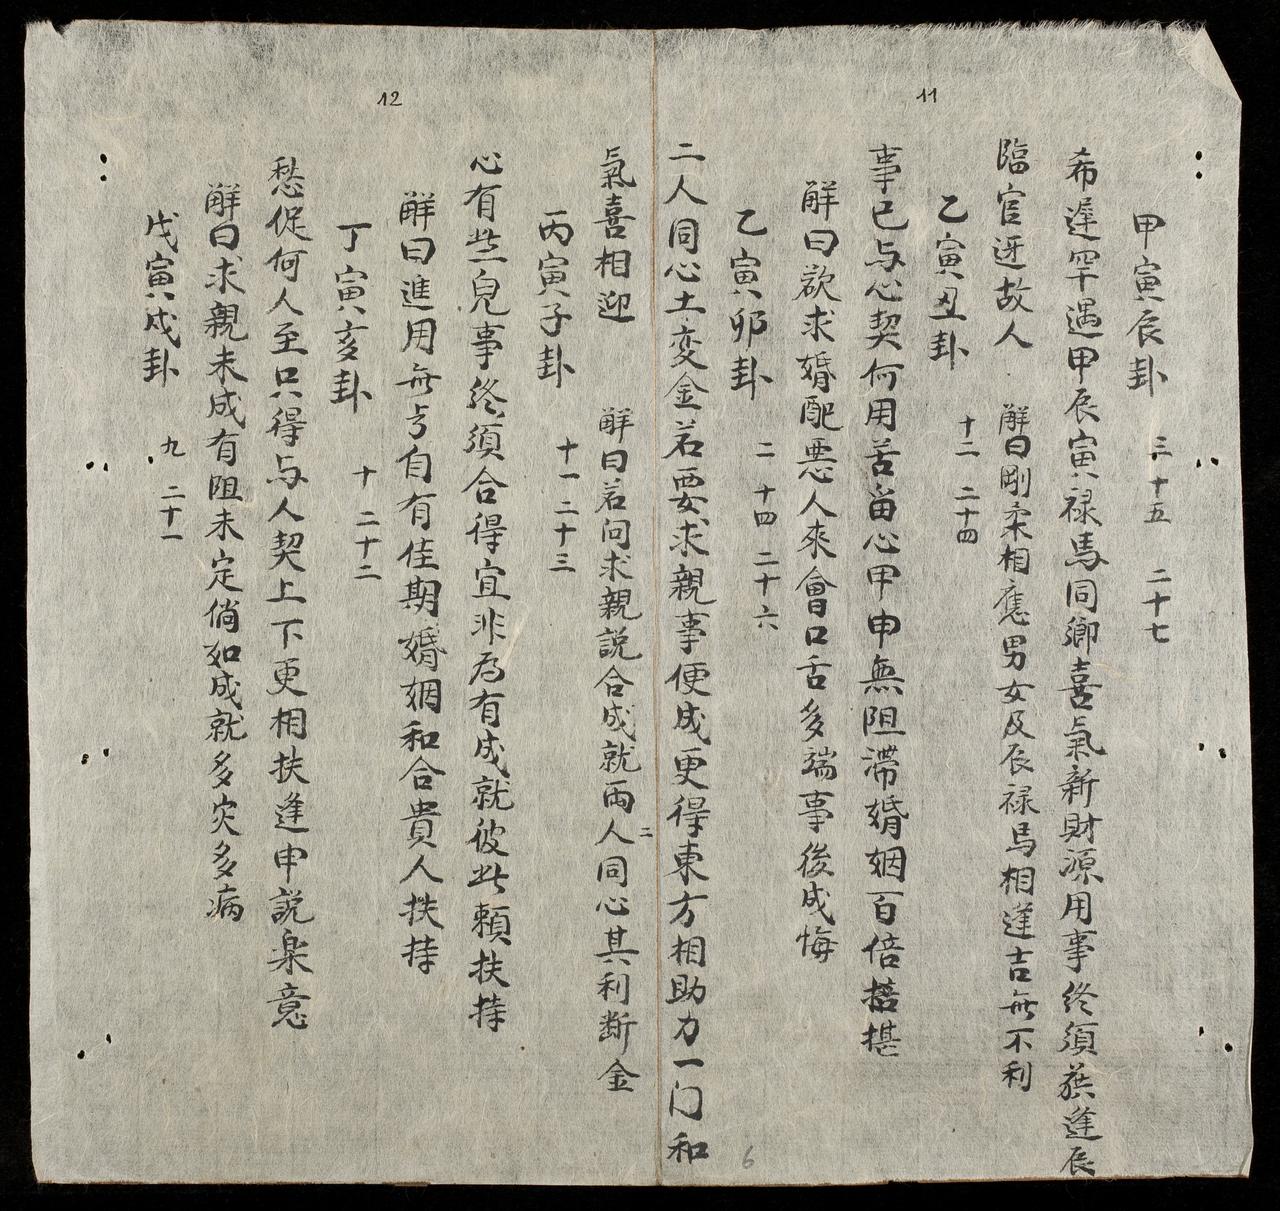 11
甲寅辰卦 三 十五 二十七
希遅罕遇甲辰寅禄馬同鄉喜氣新財源用事終須 逢辰
臨官迓故人 解曰剛柔相應男女及辰禄馬相逢吉無不利
乙寅丑卦 十二 二十四
事已与心契何用苦留心甲申無阻滯婚姻百倍 堪
解曰欲求婚配惡人來會口舌多端事後成悔
乙寅卯卦 二 十四 二十六
二人同心土变金若要求親事便成更得東方相助力一门和
6
12
氣喜相迎 解曰若问求親説合成就両人二同心其利断金
丙寅子卦 十一 二十三
心有些兒事終須合得宜非為有成就彼此頼扶持
解曰進用無亏自有佳期婚姻和合貴人扶持
丁寅亥卦 十 二十二
愁促何人至只得与人契上下更相扶逢申説楽意
解曰求親未成有阻未定倘如成就多灾多病
戊寅戌卦 九 二十一